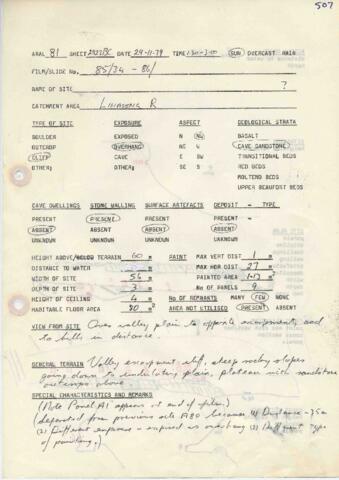 507
ARAL 81 SHEET 2927BC DATE 29-11-79 TIME 1.30-3.00 SUN OVERCAST RAIN
FILM/SLIDE No. 85/34 - 86/
NAME OF SITE ?
CATCHMENT AREA R
TYPE OF SITE EXPOSURE ASPECT GEOLOGICAL STRATA
BOULDER EXPOSED N NW BASALT
OUTCROP OVERHANG NE W CAVE SANDSTONE
CLIFF CAVE E SW TRANSITIONAL BEDS
OTHER: OTHER: SE S RED BEDS
MOLTENO BEDS
UPPER BEAUFORT BEDS
CAVE DWELLINGS STONE WALLING SURFACE ARTEFACTS DEPOSIT - TYPE
PRESENT PRESENT PRESENT PRESENT -
ABSENT ABSENT ABSENT ABSENT
UNKNOWN UNKNOWN UNKNOWN UNKNOWN
HEIGHT ABOVE/BELOW TERRAIN 60 m PAINT MAX VERT DIST 1 m
DISTANCE TO WATER m MAX HOR DIST 27 m
WIDTH OF SITE 56 m PAINTED AREA m²
DEPTH OF SITE 3 m No OF PANELS 9
HEIGHT OF CEILING 4 m No OF REMNANTS MANY FEW NONE
HABITABLE FLOOR AREA 80 m² AREA NOT UTILISED PRESENT ABSENT
VIEW FROM SITE Over valley, plain to opposite escarpment, and
to hills in distance.
GENERAL TERRAIN Valley escarpment cliff, steep rocky slopes
going down to undulating plain, plateau with sandstone
outcrops above
SPECIAL CHARACTERISTICS AND REMARKS
(Note Panel A1 appears at end of film.)
separated from previous site A80 because (1) Distance - 75m
(2) Different exposure - as overhang (3) Different type
of painting.)